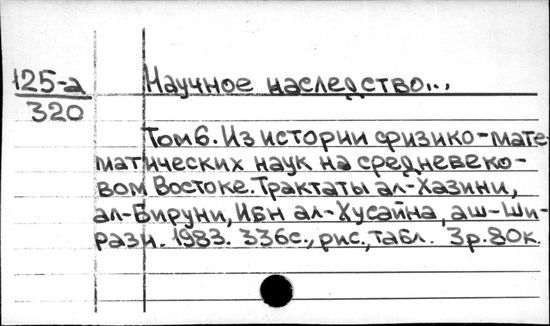 125-а Научное наследство...
320
Том 6. Из истории физико-мате-
матических наук на средневеко-
вом Востоке. Трактаты ал-Хазини,
ал-Бируни, Ибн ал-Хусайна, аш-Ши-
рази. 1983. 336с., рис., табл. 3р.80к.